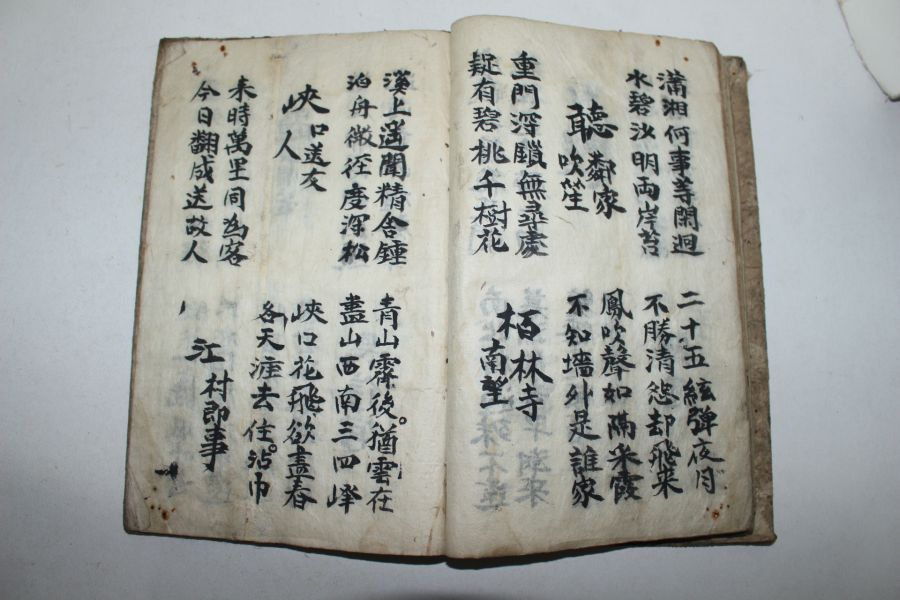 瀟湘何事等閑迴
水碧沙明兩岸苔
二十五絃彈夜月
不勝清怨却飛来
聽鄰家
吹笙
鳳吹聲如隔采霞
不知墻外是誰家
重門深鎖無尋處
疑有碧桃千樹花
栢林寺
南望
溪上遥聞精舍鍾
泊舟微径度深松
青山霽後。猶雲在
盡山西南三四峰
峽口送友
人
峽口花飛欲盡春
各天涯去住。沾巾
来時萬里同為客
今日翻成送故人
江村即事